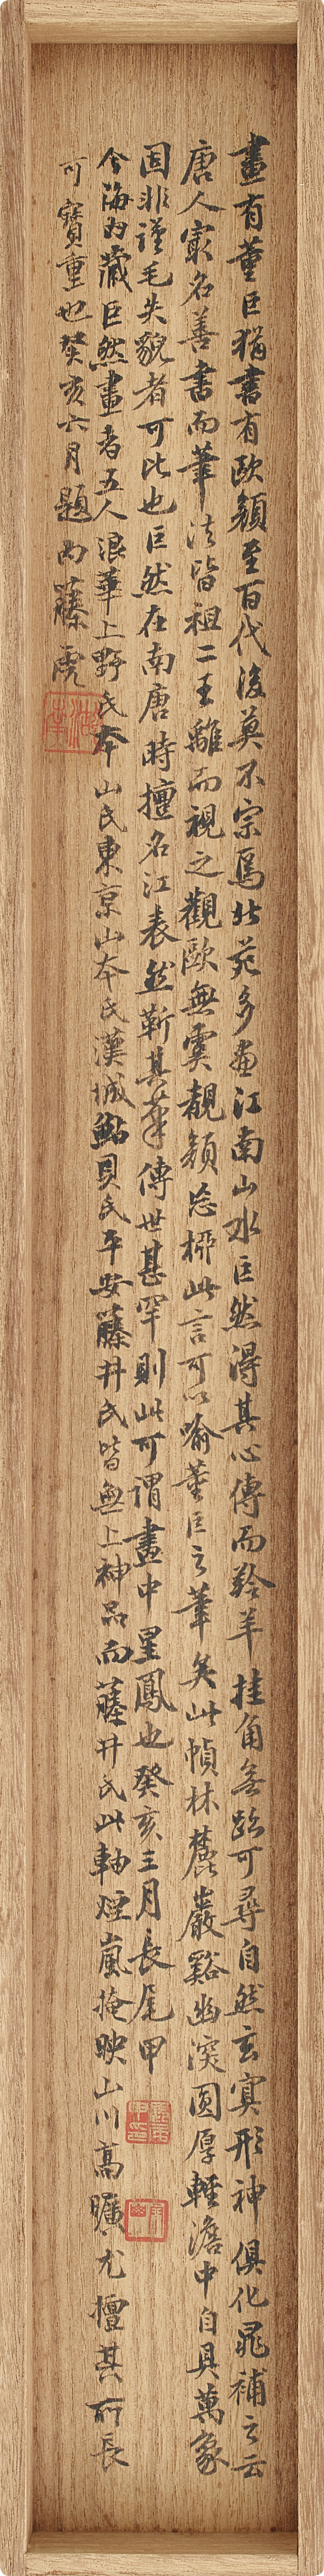 畫有董巨猶書有歐顏至百代後莫不宗焉北苑多畫江南山水巨然得其心傳而羚羊挂角無迹可尋自然玄冥形神俱化晁補之云
唐人最名善書而筆法皆祖二王離而視之觀歐無虞覩顏忘柳此言可以喻董巨之筆矣此幀林麓巖谿幽深圓厚輕澹中自具萬象
固非謹毛失貌者可比也巨然在南唐時擅名江表然靳其筆傳世甚罕則此可謂畫中星鳳也癸亥三月長尾甲
今海內藏巨然畫者五人浪華上野氏本山氏東京山本氏漢城鮎貝氏平安藤井氏皆無上神品而藤井氏此軸煙嵐掩映山川高曠尤擅其所長
可寶重也癸亥六月題內藤虎
湖南
長尾甲印